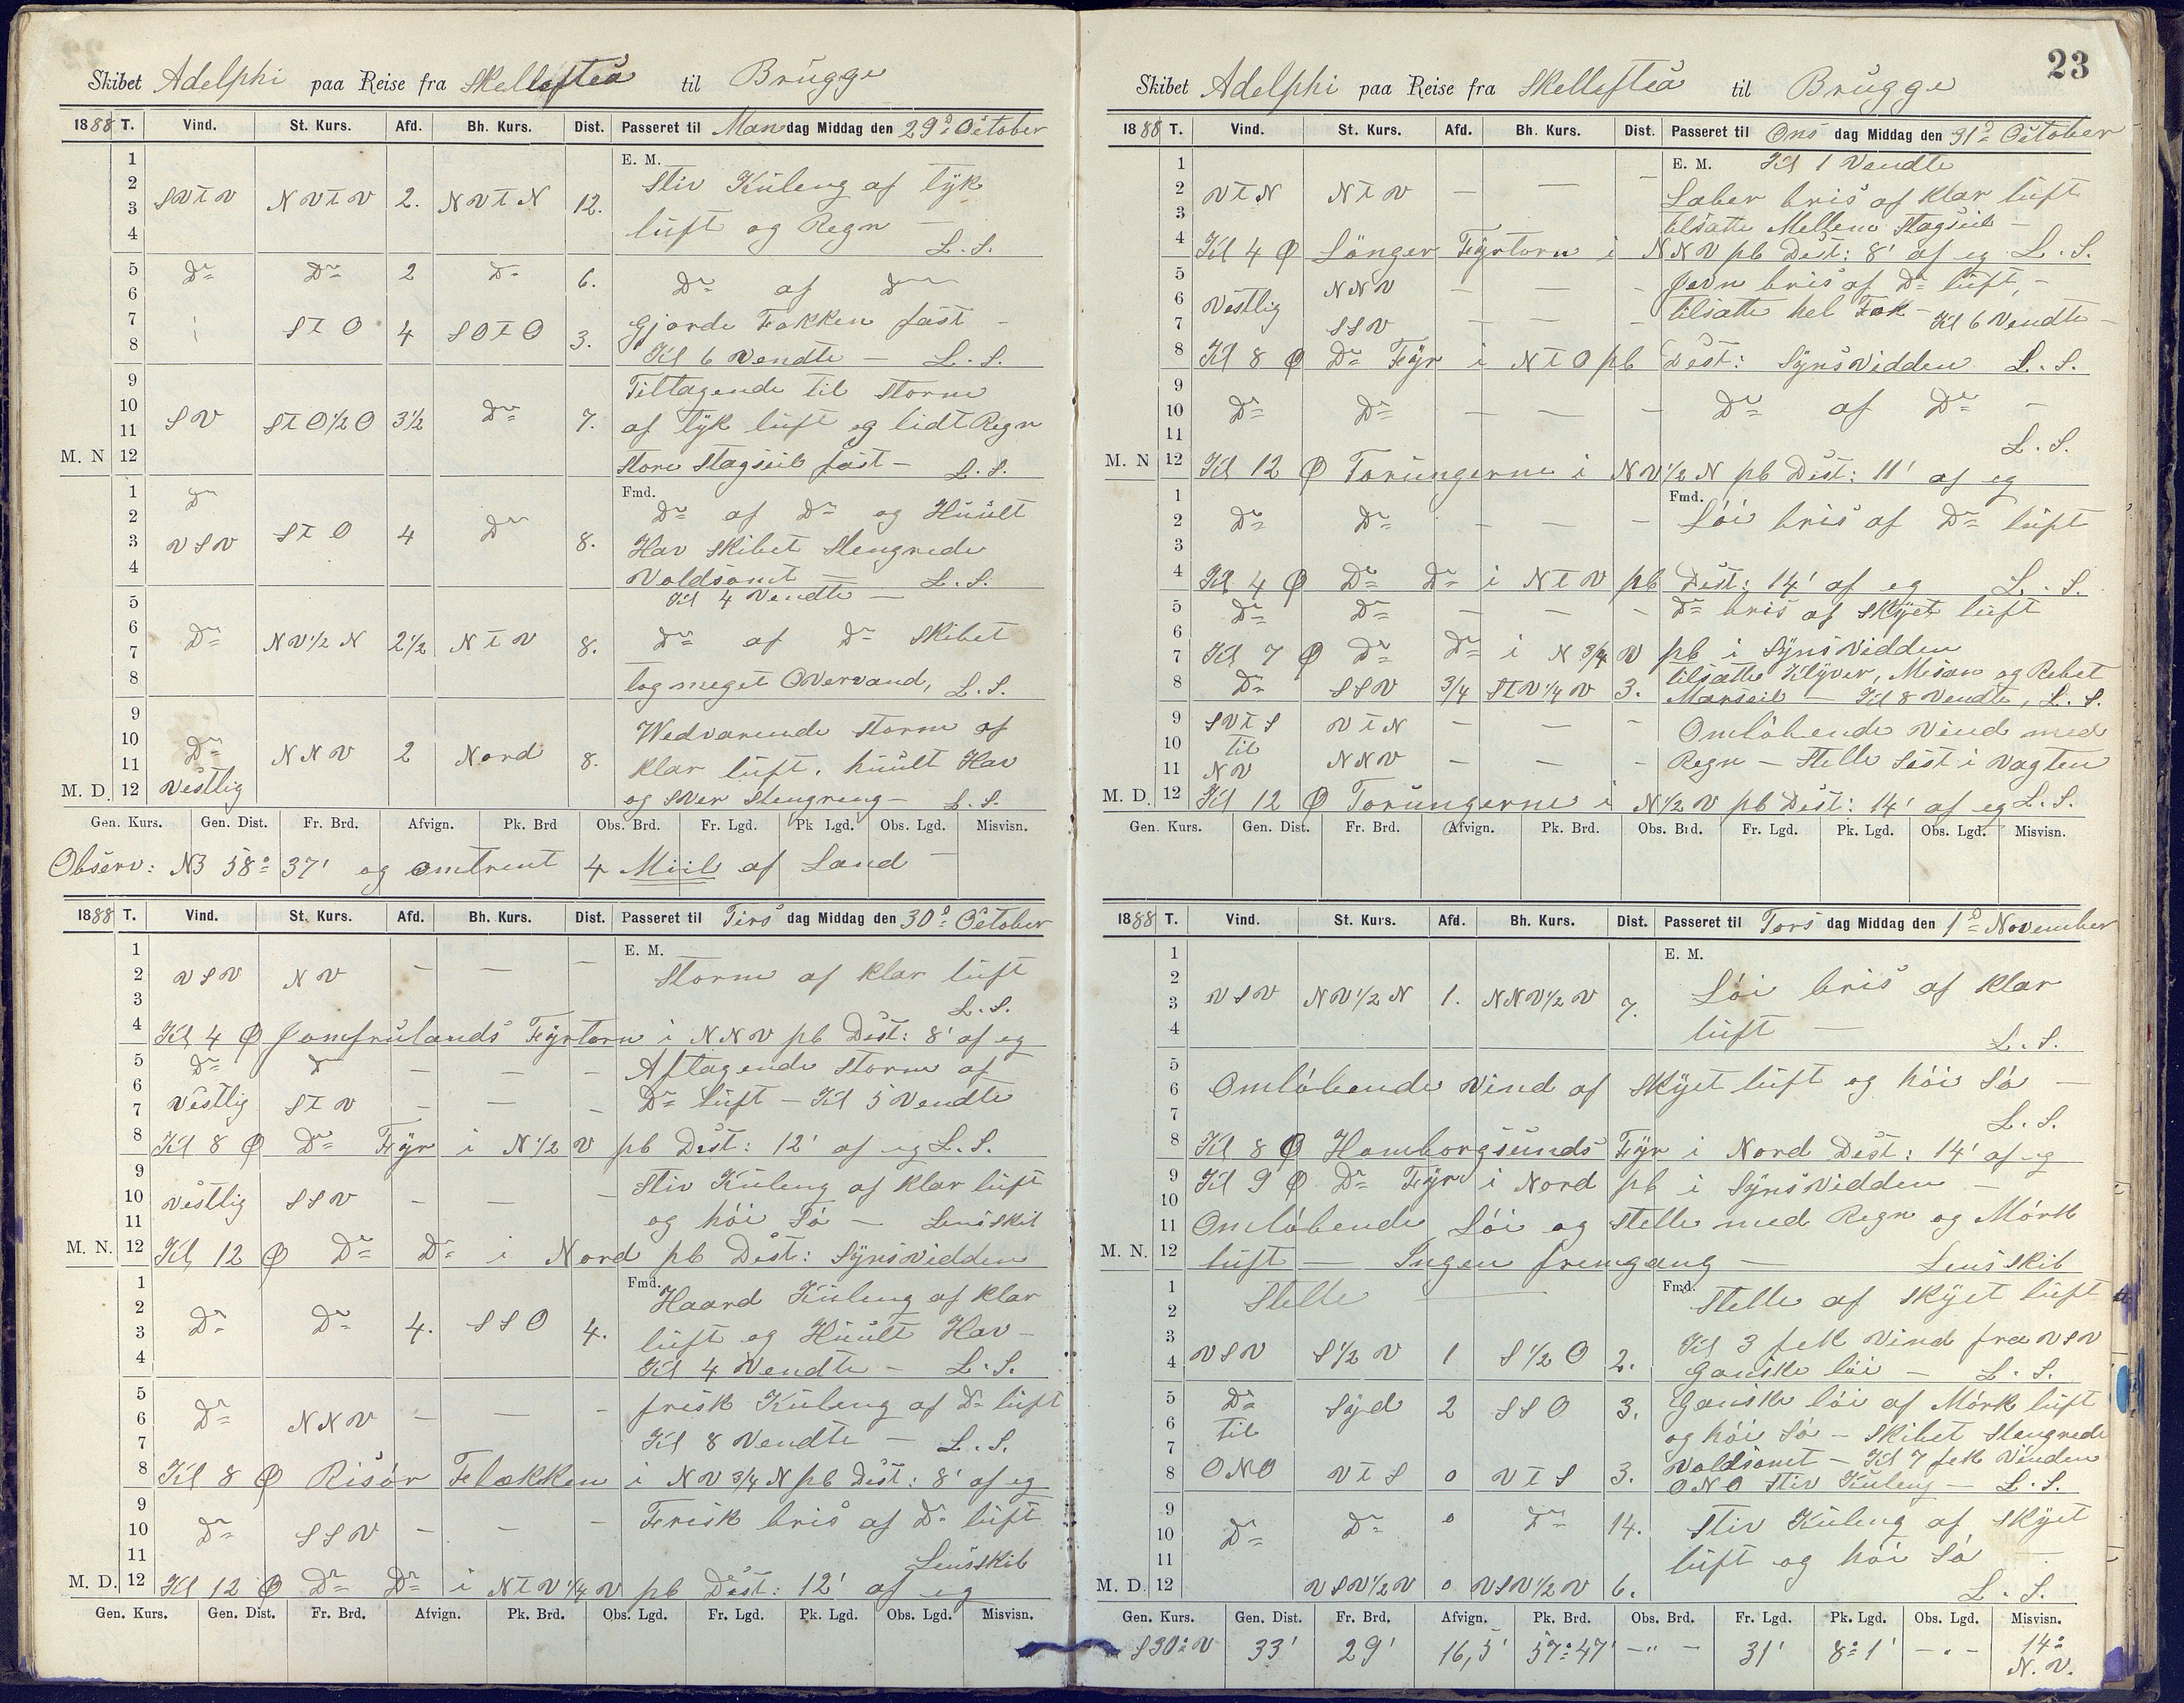 Skibet Adelphi paa Reise fra Skellefteå til Brügge
1888 T. Vind. St. Kurs. Afd. Bh. Kurs. Dist. Passeret til Mandag Middag den 29d October
E. M.
1
2 SVTV NVTV 2. NVTN 12. Stiv Küleng af tyk
3 lüft og Regn —
4 L. S.
5 Do Do 2 Do 6. Do af Do
6
7 STO 4 SOTO 3. Gjorde Fokken fast —
8 Kl 6 Vendte — L. S.
9 Tiltagende til Storm
10 SV STO1/2O 3 1/2 Do 7. af tyk lüft og lidt Regn
11
M. N 12 Store Stagseil fast — L. S.
Fmd.
1 Do Do af Do og Hüült
2 STO 4 Do 8. Hav Skibet Slengrede
3 VSV
4 Voldsomt — L. S.
Kl 4 Vendte —
5
6 Do NV1/2N 2 1/2 NTV 8. Do af Do Skibet
7
8 tog meget Overvand, L. S.
9 Wedvarende Storm af
10 Do NNV 2 Nord 8. klar lüft. hüült Hav
11
M. D. 12 Vestlig og Sver Slengreng — L. S.
Gen. Kurs. Gen. Dist. Fr. Brd. Afvign. Pk. Brd Obs. Brd. Fr. Lgd. Pk Lgd. Obs. Lgd. Misvisn.
Observ: NB 58° 37' og omtrent 4 Miil af Land —
1888 T. Vind. St. Kurs. Afd. Bh. Kurs. Dist. Passeret til Tirsdag Middag den 30d October
E. M.
1
2 VSV NV — — — Storm af klar lüft
3 L. S.
4 Kl 4 Ø Jomfrülands Fyrtorn i NNV pb Dist: 8' af eg
5 Do Do — — — Aftagende Storm af
6
7 Vestlig STV — — — Do lüft — Kl 5 Vendte
8 Kl 8 Ø Do Fyr i N1/2V pb Dist: 12' af eg L. S.
9 Stiv Küleng af klar lüft
10 Vestlig SSV — — —
11 og höi Sö — Lens Skib
M. N. 12 Kl 12 Ø Do Do i Nord pb Dist: Synsvidden
Fmd.
1 Haard Küleng af klar
2 Do Do 4. SSO 4.
3 lüft og Hüült Hav —
4 Kl 4 Vendte — L. S.
5 frisk Küleng af Do lüft
6 Do NNV — — —
7 Kl 8 Vendte — L. S.
8 Kl 8 Ø Risör Flækken i NV3/4N pb Dist: 8' af eg
9 Frisk bris af Do lüft
10 Do SSV — — —
11 Lensskib
M. D. 12 Kl 12 Ø Do Do i NTV1/4V pb Dist: 12' af eg
Gen. Kurs. Gen. Dist. Fr. Brd. Afvign. Pk. Brd. Obs. Lgd. Fr. Lgd. Pk. Lgd. Obs. Lgd. Misvisn.
23
Skibet Adelphi paa Reise fra Skellefteå til Brügge
1888 T. Vind. St. Kurs. Afd. Bh. Kurs. Dist. Passeret til Onsdag Middag den 31d October
E. M. Kl 1 Vendte
1
2 VTN NTV — — — Laber bris af klar lüft
3 tilsatte Mellem Stagseil —
4 Kl 4 Ø Lönger Fyrtorn i NNV pb Dist: 8' af eg L. S.
5 NNV — — — Jevn bris af Do lüft, —
6 Vestlig tilsatte hel Fok — Kl 6 Vendte —
7 SSV — — —
8 Kl 8 Ø Do Fyr i NTO pb Dist: Synsvidden L. S.
9
10 Do Do — — — Do af Do —
11 L. S.
M. N 12 Kl 12 Ø Torüngerne i NV1/2N pb Dist: 11' af eg
Fmd.
1
2 Do Do — — — Löi bris af Do lüft
3
4 Kl 4 Ø Do Do i NTV pb Dist: 14' af eg L. S.
5 Do Do — — — Do bris af Skyet lüft
6
7 Kl 7 Ø Do Do i N 3/4 V pb i Synsvidden
tilsatte Klyver, Mesan og Rebet
8 Do SSV 3/4 STV1/4V 3. Marseil — Kl 8 Vendte, L. S.
9 SVTS VTN — — — Omlöbende Vind med
10 til
11 NV NNV — — — Regn — Stelle Sist i Vagten
M. D. 12 Kl 12 Ø Torüngerne i N1/2V pb Dist: 14' af eg L. S.
Gen. Kurs. Gen. Dist. Fr. Brd. Afvign. Pk. Brd. Obs. Brd. Fr. Lgd. Pk. Lgd. Obs. Lgd. Misvisn.
1888 T. Vind. St. Kurs. Afd. Bh. Kurs. Dist. Passeret til Torsdag Middag den 1d November
E. M.
1
2
3 VSV NV1/2N 1. NNV1/2V 7. Löi bris af klar
4 lüft — L. S.
5
6 Omlöbende Vind af Skyet lüft og höi Sö —
7 L. S.
8 Kl 8 Ø Homborgsünds Fyr i Nord Dist: 14' af eg
9 Kl 9 Ø Do Fyr i Nord pb i Synsvidden —
10
11 Omlöbende Löi og Stelle med Regn og Mörk
M. N. 12 lüft — Ingen fremgang — Lens Skib
Fmd.
1 Stelle — Stelle af Skyet lüft
2
3 Kl 3 fek Vind fra VSV
4 VSV S1/2V 1 S1/2O 2. Ganske löi — L. S.
5 Do Syd 2 SSO 3. Ganske löi af Mörk lüft
6 til og höi Sö — Skibet Slengrede
7 Voldsomt — Kl 7 fek Vinden
8 ONO VTS 0 VTS 3. ONO Stiv Küleng — L. S.
9
10 Do Do 0 Do 14. Stiv Küleng af Skyet
11 lüft og höi Sö —
M. D. 12 VSV1/2V 0 VSV1/2V 6. L. S.
Gen. Kurs. Gen. Dist. Fr. Brd. Afvign. Pk. Brd. Obs. Brd. Fr. Lgd. Pk. Lgd. Obs. Lgd. Misvisn.
S30°V 33' 29' 16,5' 57°47' —"— 31' 8°1' —"— 14° N. V.